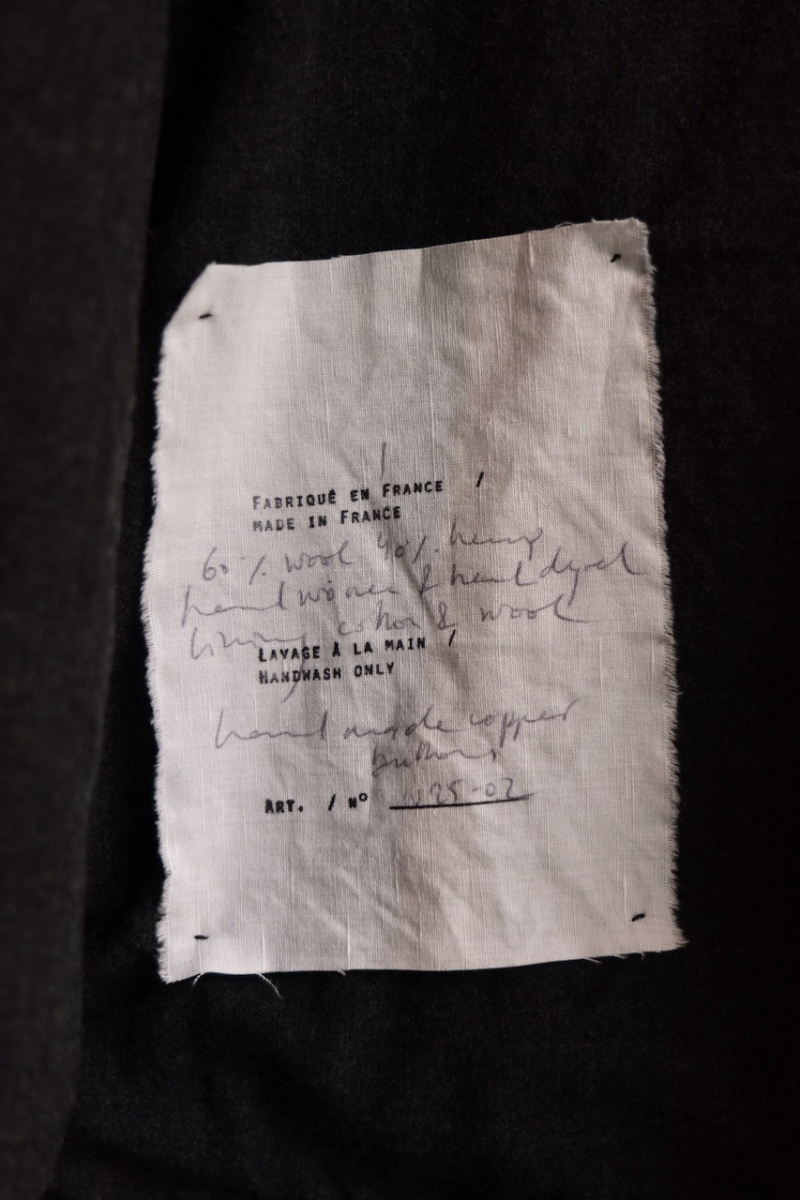 FABRIQUÉ EN FRANCE /
MADE IN FRANCE
60% wool 40% hemp
hand woven & hand dyed
lining cotton & wool
LAVAGE À LA MAIN /
HANDWASH ONLY
hand made copper
buttons
ART. / Nº W25-02